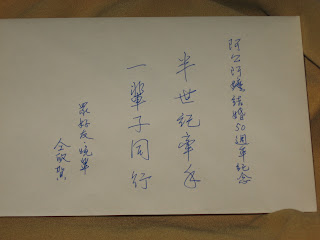 阿公阿嬤結婚50週年紀念
半世紀牽手
一輩子同行
眾好友晚輩
仝敬賀